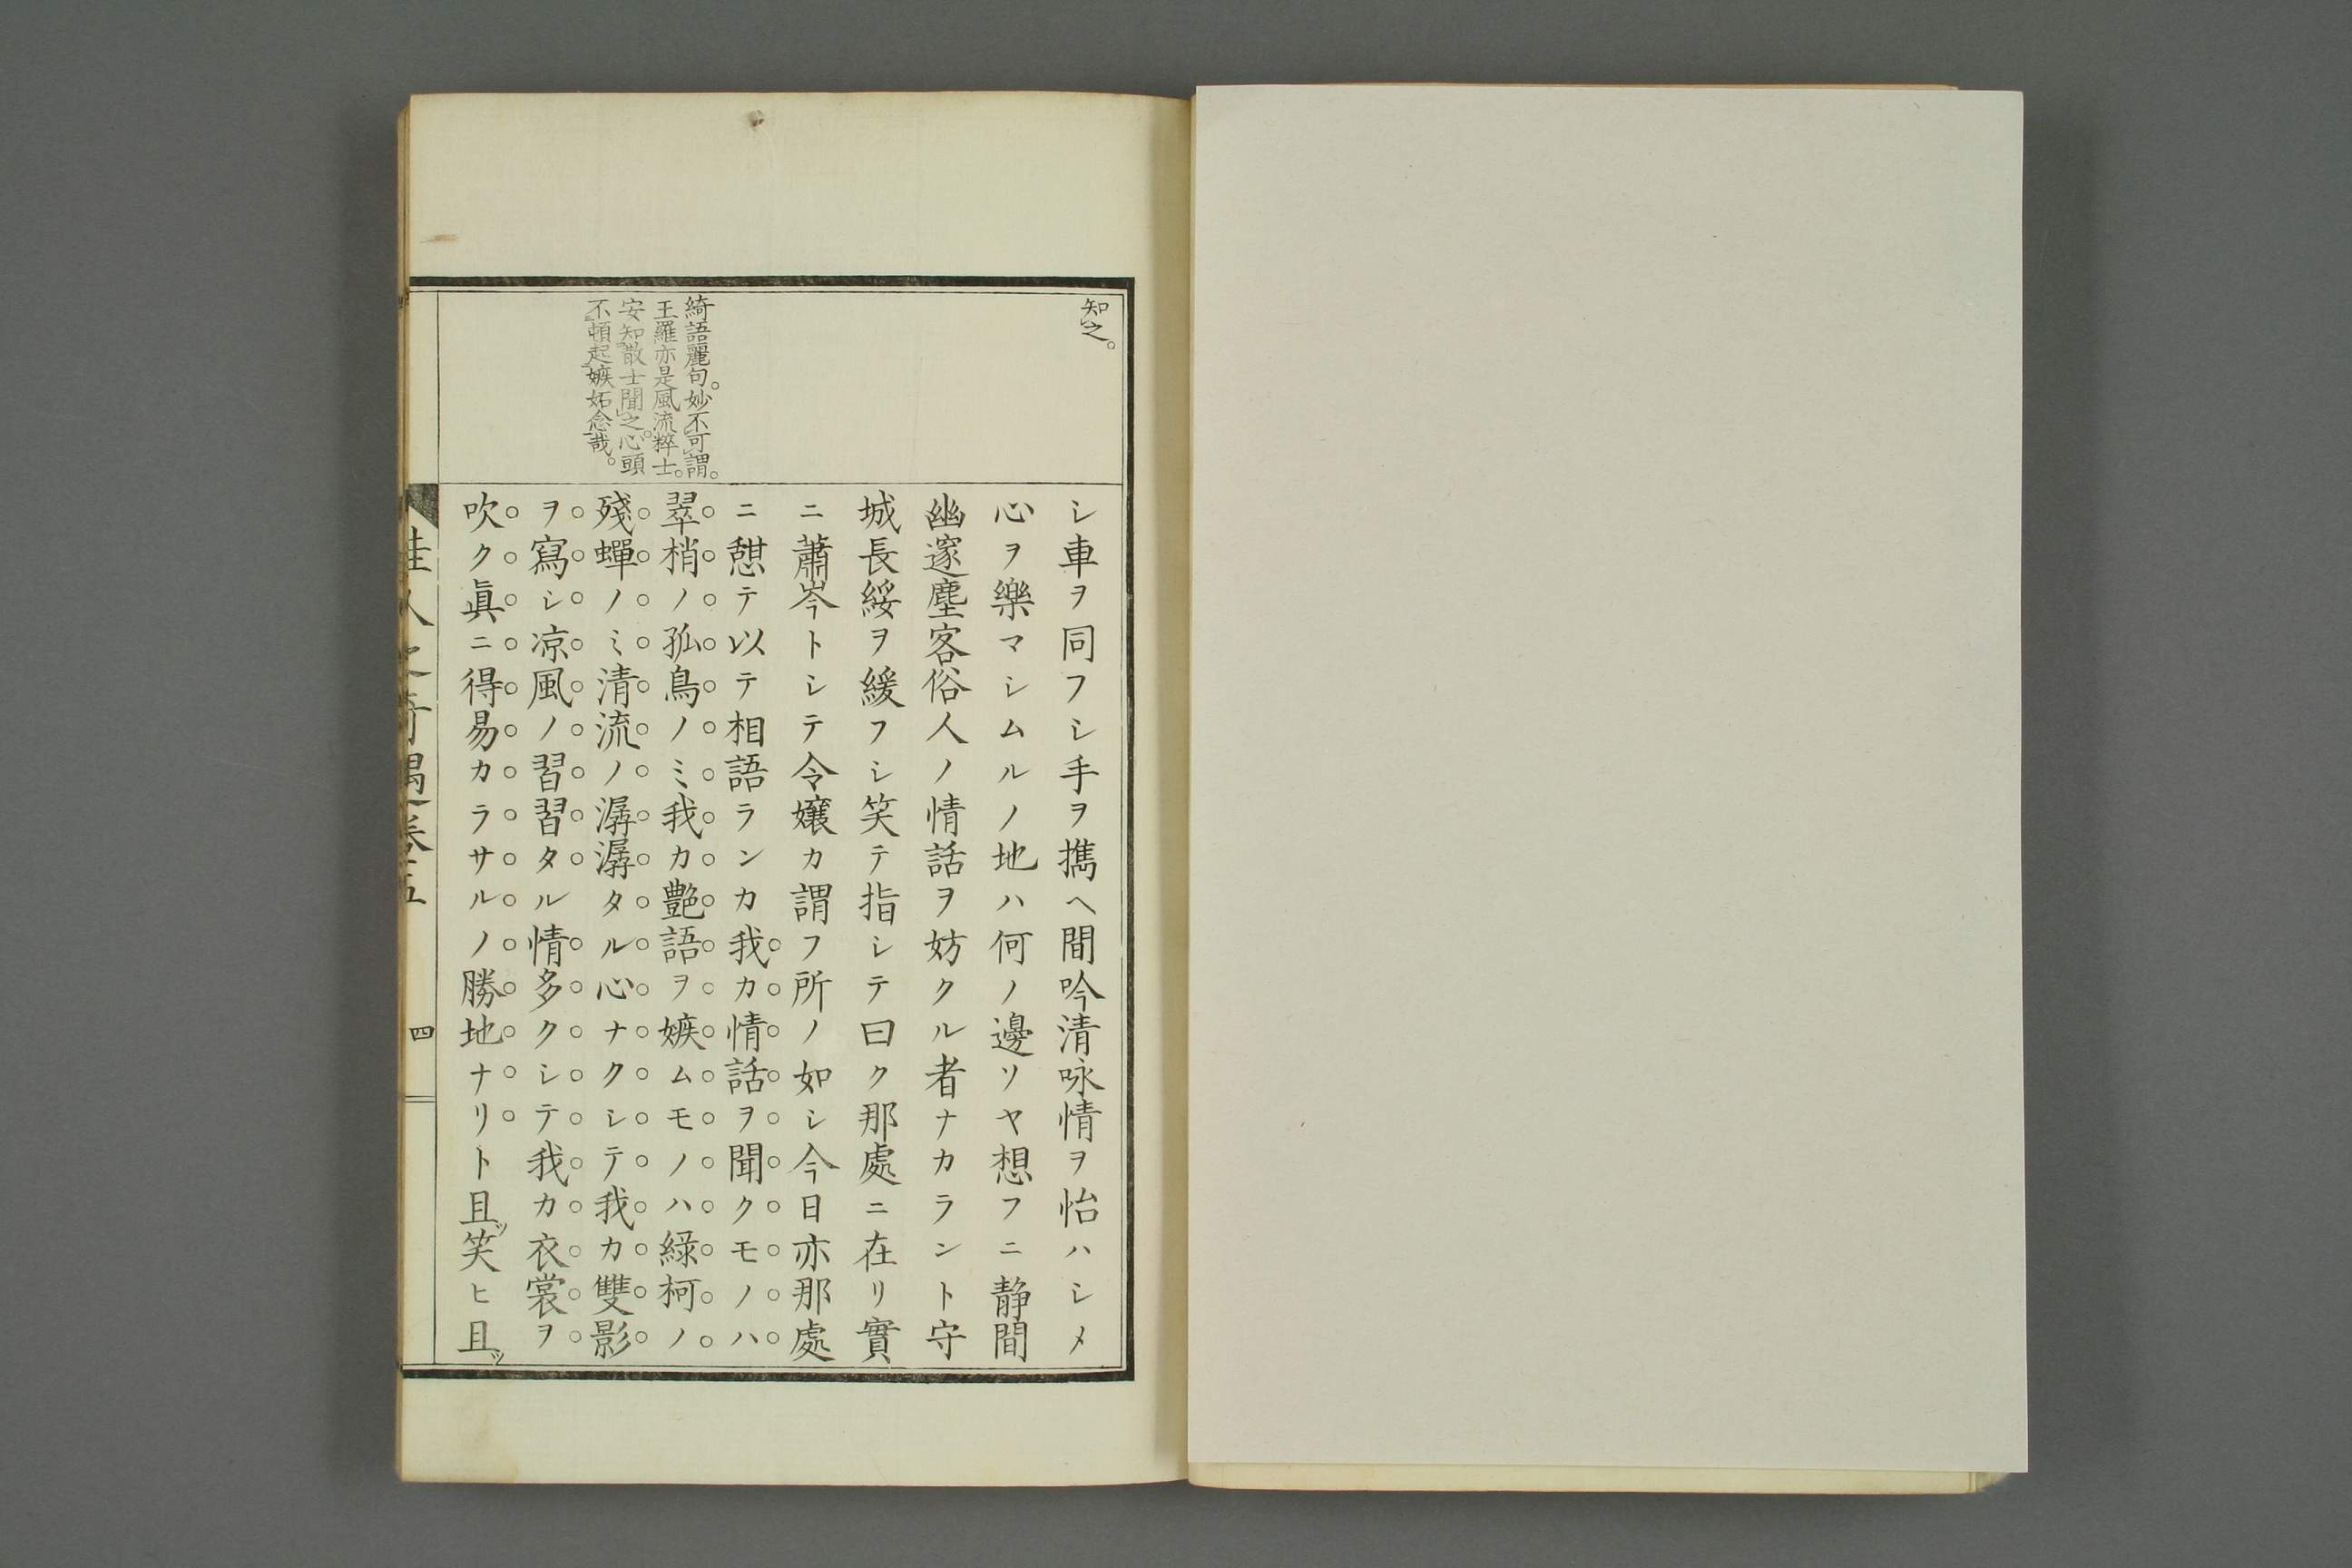 知之。
綺語麗句。妙不可謂。
王羅亦是風流粹士。
安知散士聞之。心頭
不頓起嫉妬念哉。
シ車ヲ同フシ手ヲ携ヘ間吟清咏情ヲ怡ハシメ
心ヲ樂マシムルノ地ハ何ノ邊ソヤ想フニ静間
幽邃塵客俗人ノ情話ヲ妨クル者ナカラント守
城長綏ヲ緩フシ笑テ指シテ曰ク那處ニ在リ實
ニ蕭岑トシテ令孃カ謂フ所ノ如シ今日亦那處
ニ憇テ以テ相語ランカ我カ情話ヲ聞クモノハ
翠梢ノ孤鳥ノミ我カ艶語ヲ嫉ムモノハ綠柯ノ
殘蟬ノミ清流ノ潺潺タル心ナクシテ我カ雙影
ヲ寫シ凉風ノ習習タル情多クシテ我カ衣裳ヲ
吹ク眞ニ得易カラサルノ勝地ナリト且ツ笑ヒ且ツ
佳人之奇遇卷五
四